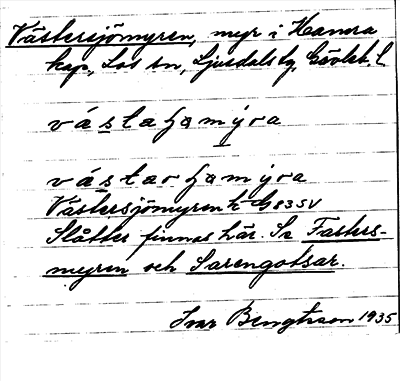 Västersjömyren, myr i Hamra
kap., Los sn, Ljusdals tg, Gävlebt. l.
västahamýra
västarhamýra
Västersjömyren k G 83 SV
Slåtter finnas här. Se Fasters-
myren och Sarengotsar.
Ivar Bengtsson 1935